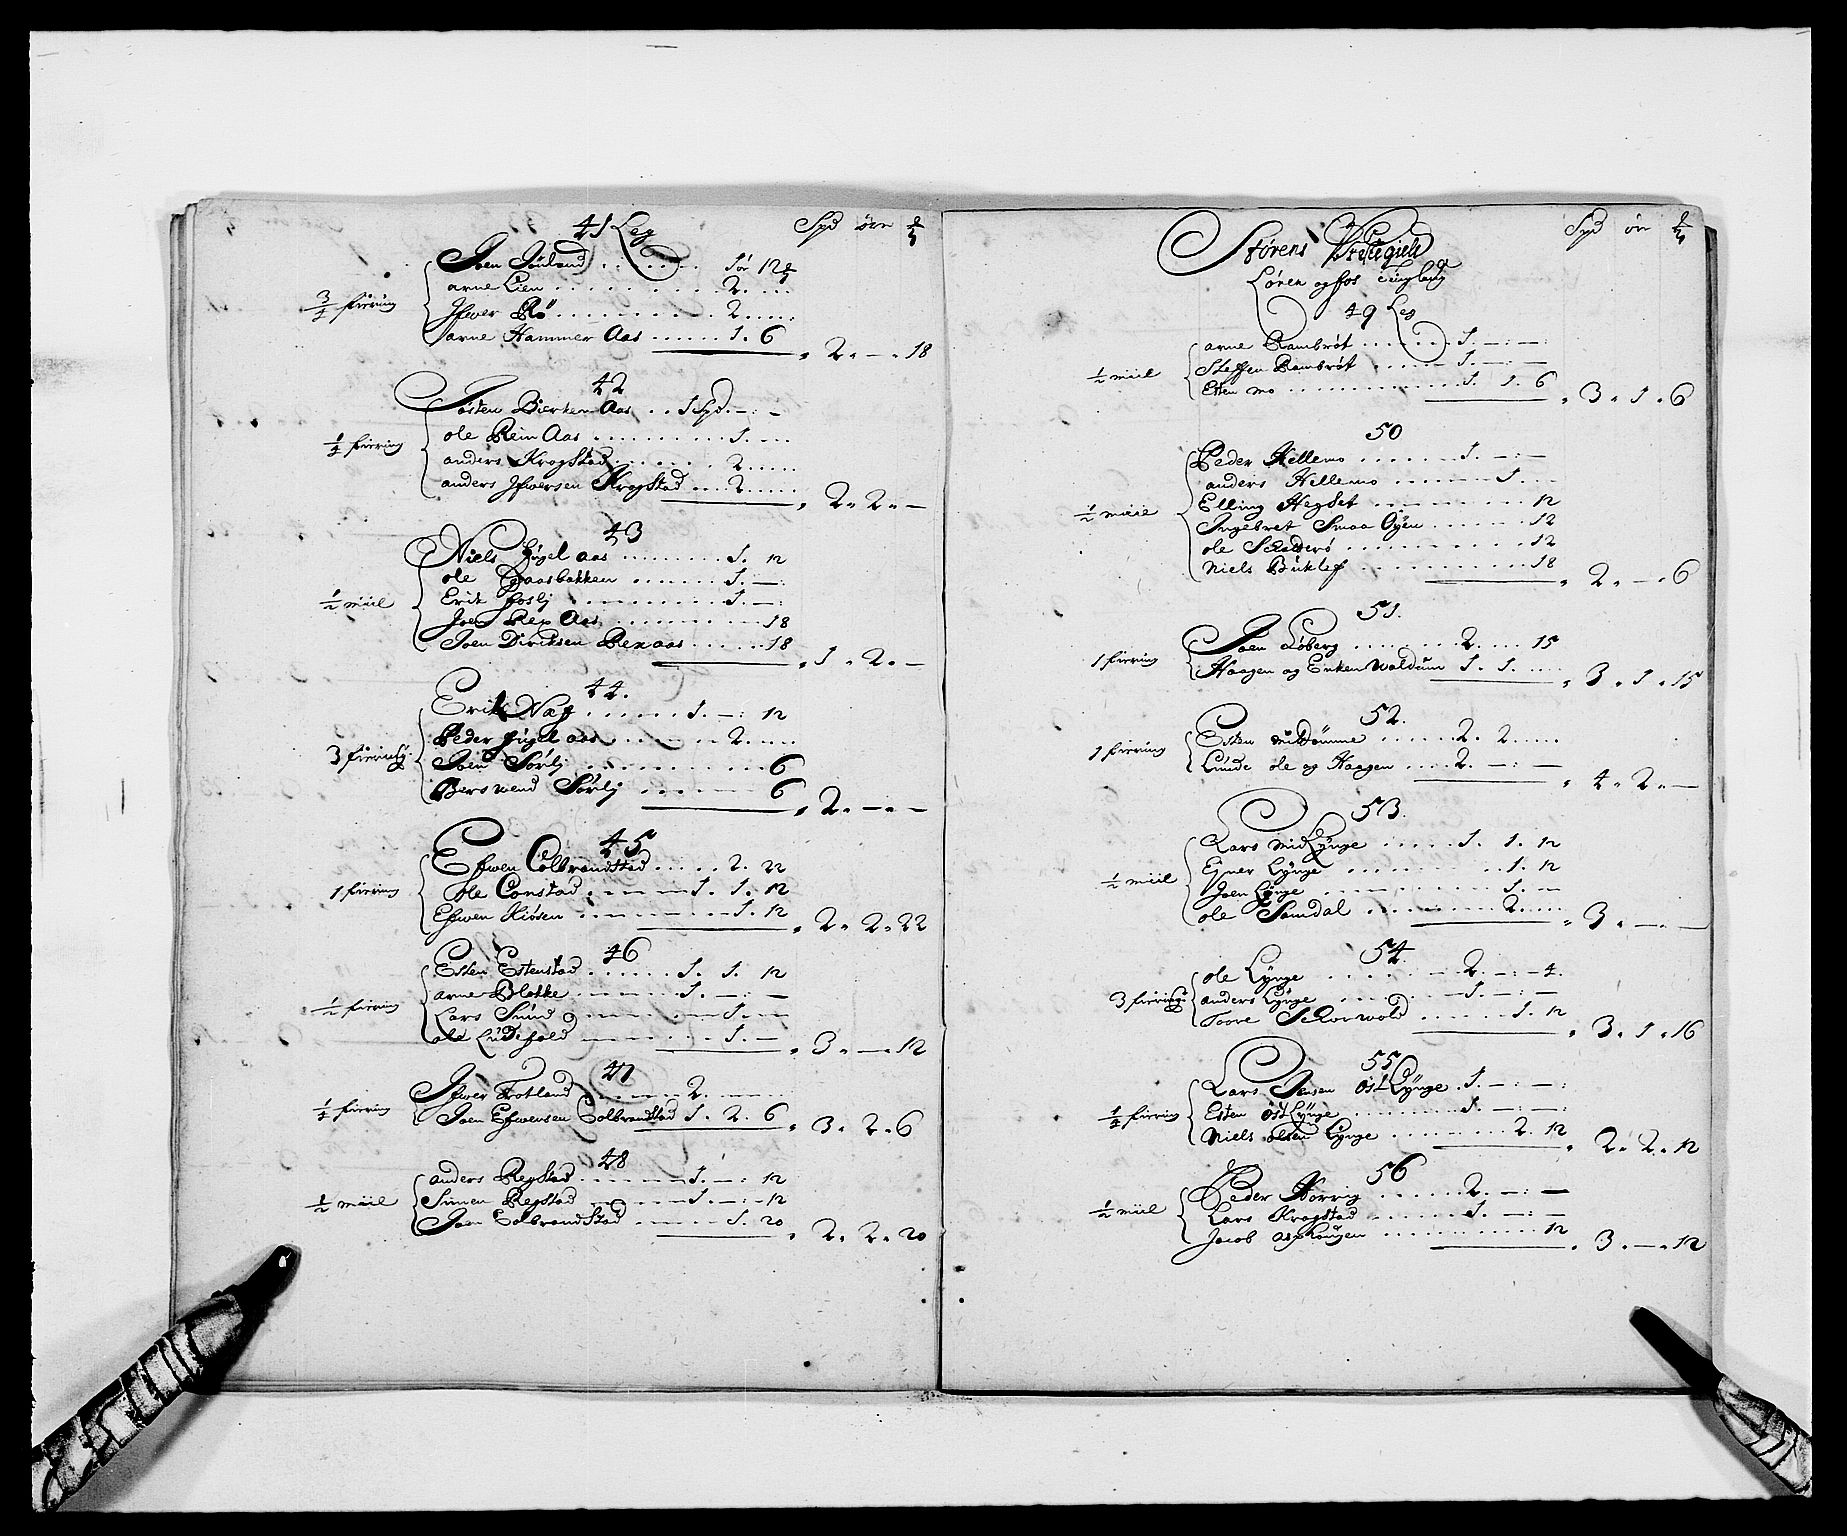 41 Leg Spd ører
Joen Jouland . . . 1ør 12
¾ fiering
arne Lien . . . 2
Jfwer Rø . . . 2
arne Hammer Aas . . . 1. 6
2. — . 18
42
Josten Bierken Aas . . 1 Spd. — . —
¼ fiering
ole Rein Aas . . . 1
anders Krogstad . . . 2
anders Jfwersen Krogstad . . . 2
2. 2. —
43
Niels Hugel aas . . . 1. 12
ole Graasbakken . . . 1. —
½ miil
Erik fosli . . . 1. —
Joen Rep Aas . . . 18
Joen Dirichsen Repaas . . . 18
1. 2. —
44.
Erik Næs . . . 1. — : 12
Peder Hugel aas . . . 2
3 fieringr
Joen Sørlj . . . 6
Berswend Sørlj . . . 6
2. — . —
45
Efwen Colbrandstad . . . 2. 22
1 fiering
ole Constad . . . 1. 1. 12
Efwen Kiøsen . . . 1. 12
2. 2. 22
46
Esten Estenstad . . . 1. 1. 12
½ fiering
arne Blokke . . . 1. — : —
Lars Sund . . . 1. —
ole Lundefald . . . 1. —
3. — . 12
47
Jfwer Frotland . . . 2.
¼ fiering
Joen Efwensen Colbrandstad 1. 2. 6
3. 2. 6
48
anders Regstad . . . 1. — : 12
½ miil
Simen Regstad . . . 1. — : 12
Joen Colbrandstad . . . 1. 20
2. 2. 20
Størens Prestegield Spd ør
Løren og fos tinglaug
49 Leg
arne Rambrøt . . . 1. — : —
½ miil
Steffen Rambrøt . . . 1. — : —
Esten mo . . . 1. 1. 6
3. 1. 6
50
Peder Hellemo . . . 1. — : —
anders Hellemo . . . 1
½ miil
Elling Hegset . . . 12
Ingebret Smaa Øyen . . . 12
ole . . . 12
Niels Buklef . . . 18
2. — . 6
51.
Joen Løberg . . . 2. 15
1 fiering
Haagen og Enken Woldum 1. 1.
3. 1. 15
52.
Esten mittømme . . . 2. 2.
1 fiering
Lunde ole og Haagen . . . 2. — : —
4. 2. —
53.
Lars midLynge . . . 1. 1. 12
½ miil
Ejner Lynge . . . 1. 12
Joen Lynge . . . 1. —
ole Samdal . . . 2.
3. — . —
54.
ole Lynge . . . 2. — : 4.
3 fieringr
anders Lynge . . . 1. — : —
Toore Schorwold . . . 1. 12
3. 1. 16
55
Lars Jensen østLynge . 1. — : —
¼ fiering
Esten østLynge . . . 1. — : —
Niels olsen Lynge . . . 2. 12
2. 2. 12
56
Peder Horrig . . . 2. — : —
½ miil
Lars Krogstad . . . 1. — : —
Jacob asphougen . . . 12
3. — . 12